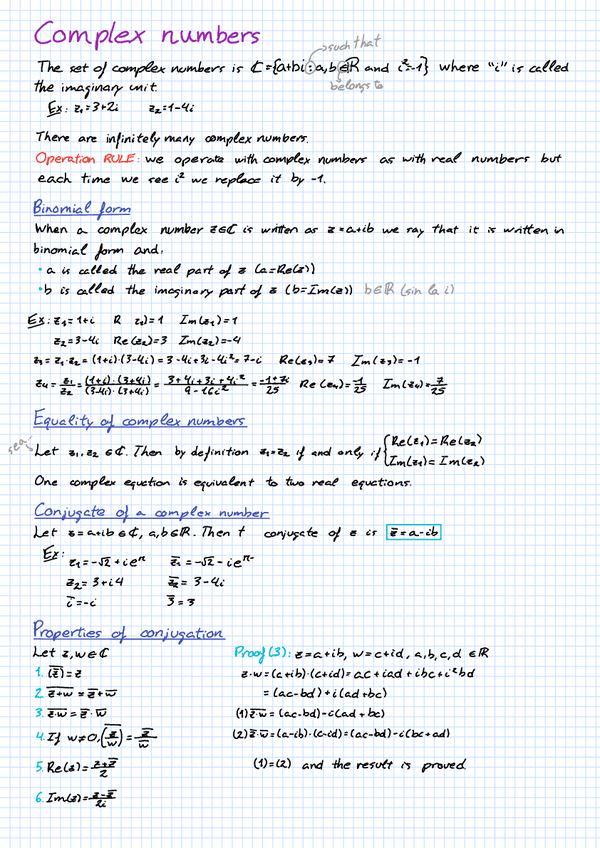 Complex numbers
such that
The set of complex numbers is ℂ={a+bi : a,b∈ℝ and i²=-1} where "i" is called
belongs to
the imaginary unit.
Ex: z₁=3+2i z₂=1-4i
There are infinitely many complex numbers.
Operation RULE: we operate with complex numbers as with real numbers but
each time we see i² we replace it by -1.
Binomial form
When a complex number z∈ℂ is written as z=a+ib we say that it is written in
binomial form and:
• a is called the real part of z (a=Re(z))
• b is called the imaginary part of z (b=Im(z)) b∈ℝ (sin la i)
Ex: z₁=1+i R z₁)=1 Im(z₁)=1
z₂=3-4i Re(z₂)=3 Im(z₂)=-4
z₃=z₁·z₂=(1+i)·(3-4i)=3-4i+3i-4i²=7-i Re(z₃)=7 Im(z₃)=-1
z₄=z₁/z₂=(1+i)·(3+4i)/(3-4i)·(3+4i)=3+4i+3i+4i²/9-16i²=-1+7i/25 Re(z₄)=-1/25 Im(z₄)=7/25
Equality of complex numbers
sea
Let z₁,z₂∈ℂ. Then by definition z₁=z₂ if and only if {Re(z₁)=Re(z₂)
Im(z₁)=Im(z₂)
One complex equction is equivalent to two real equctions.
Conjugate of a complex number
Let z=a+ib∈ℂ, a,b∈ℝ. Then t conjugate of z is z̅=a-ib
Ex:
z₁=-√2+ieᵖⁱ z̅₁=-√2-ieᵖⁱ
z₂=3+i4 z̅₂=3-4i
i̅=-i 3̅=3
Properties of conjugation
Let z,w∈ℂ
1. (z̅)̅=z
2. z+w̅=z̅+w̅
3. z·w̅=z̅·w̅
4. If w≠0, (z/w)̅=z̅/w̅
5. Re(z)=z+z̅/2
6. Im(z)=z-z̅/2i
Proof(3): z=a+ib, w=c+id, a,b,c,d∈ℝ
z·w=(a+ib)·(c+id)=ac+iad+ibc+i²bd
=(ac-bd)+i(ad+bc)
(1) z·w̅=(ac-bd)-i(ad+bc)
(2) z̅·w̅=(a-ib)·(c-id)=(ac-bd)-i(bc+ad)
(1)=(2) and the result is proved